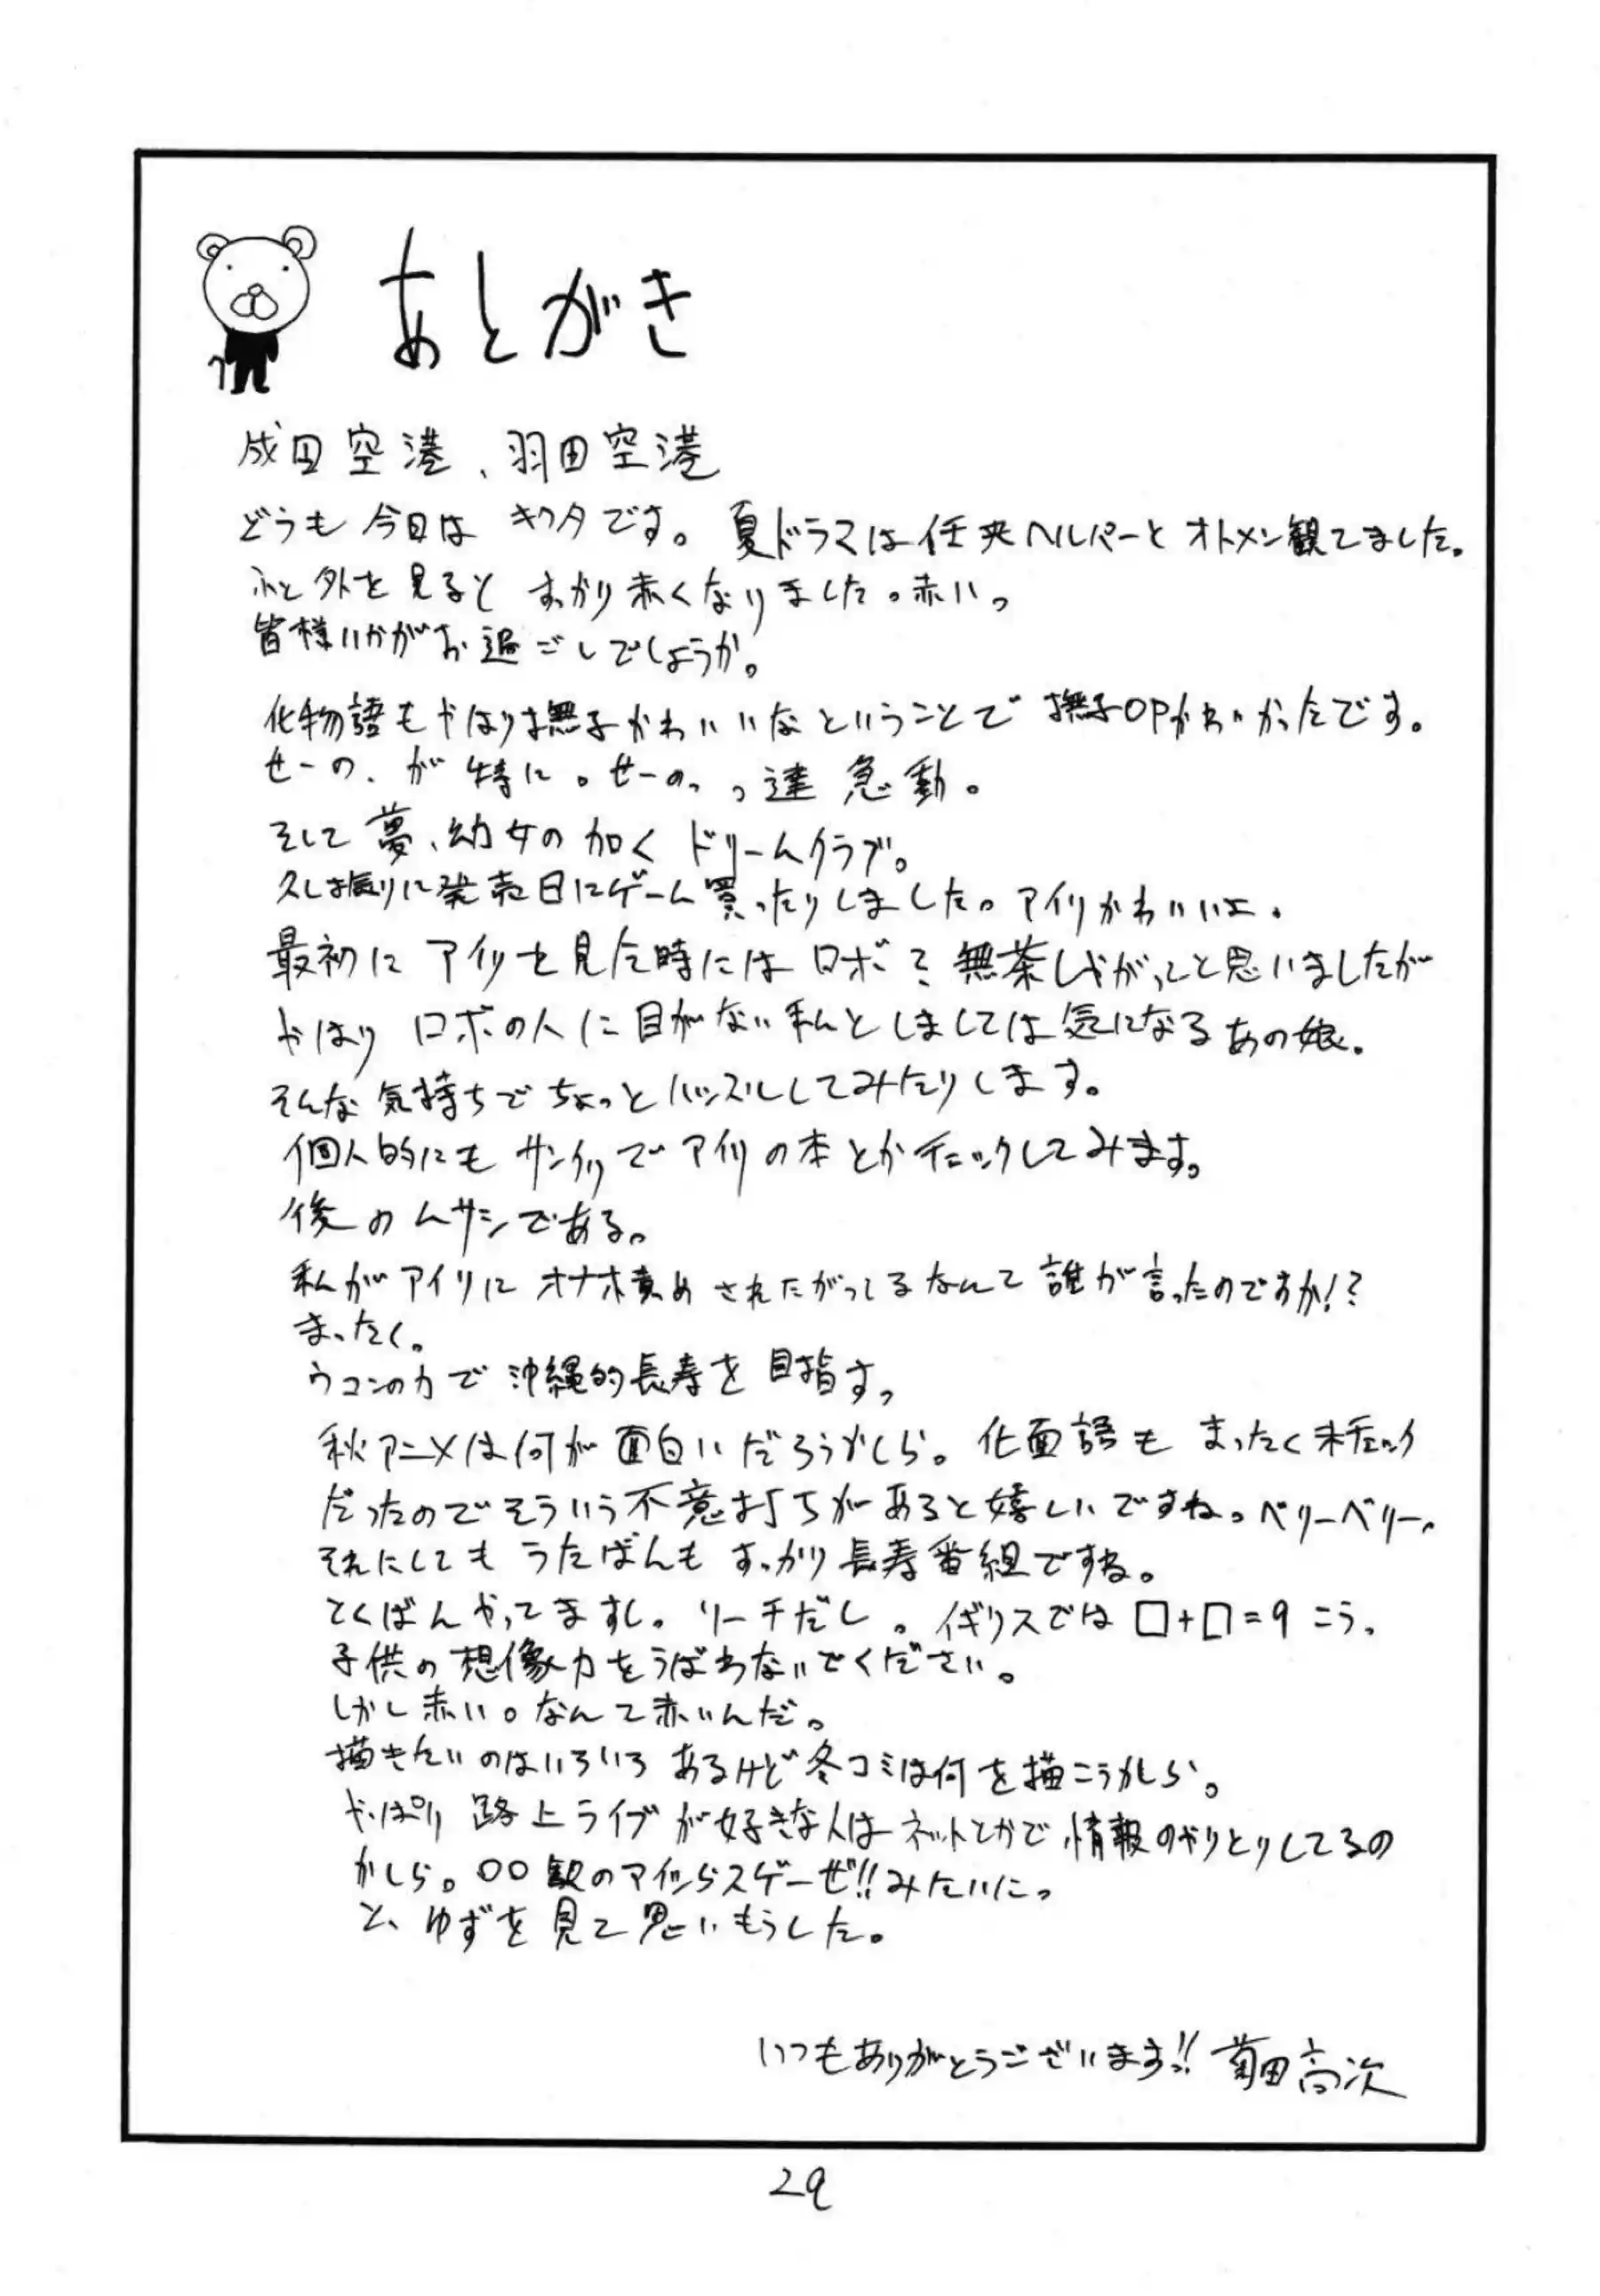 あとがき
成田空港、羽田空港
どうも今日は キクタです。夏ドラマは任侠ヘルパーと オトメン観てました。
ふと外を見ると すっかり赤くなりました。赤いっ
皆様いかがお過ごしでしょうか。
化物語もやはり撫子かわいいなということで 撫子OPかわいかったです。
せーの、が特に。せーのっ っ達 急動。
そして夢、幼女の如く ドリームクラブ。
久し振りに発売日にゲーム買ったりしました。アイリかわいいよ。
最初に アイリを見た時には ロボ? 無茶しやがってと思いましたが
やはり ロボの人に目がない私としましては気になるあの娘。
そんな気持ちでちょっとハッスルしてみたりします。
個人的にも サンクリでアイリの本とかチェックしてみます。
後のムサシである。
私がアイリに オナホ責めされたがってるなんて 誰が言ったのですか!?
まったく。
ウコンの力で 沖縄的長寿を目指すっ
秋アニメは何が面白いだろうかしら。化物語も まったく未チェック
だったのでそういう不意打ちがあると嬉しいですね。ベリーベリー。
それにしても うたばんも すっかり長寿番組ですね。
とくばんやってますし。リーチだし。イギリスでは □+□=9 こう。
子供の想像力をうばわないでください。
しかし赤い。なんて赤いんだっ
描きたいのはいろいろ あるけど冬コミは何を描こうかしら。
やっぱり 路上ライブが好きな人は ネットとかで情報のやりとりしてるの
かしら。○○駅のアイツらスゲーぜ!!みたいにっ
と、ゆずを見て思いもうした。
いつもありがとうございますっ!! 菊田高次
29